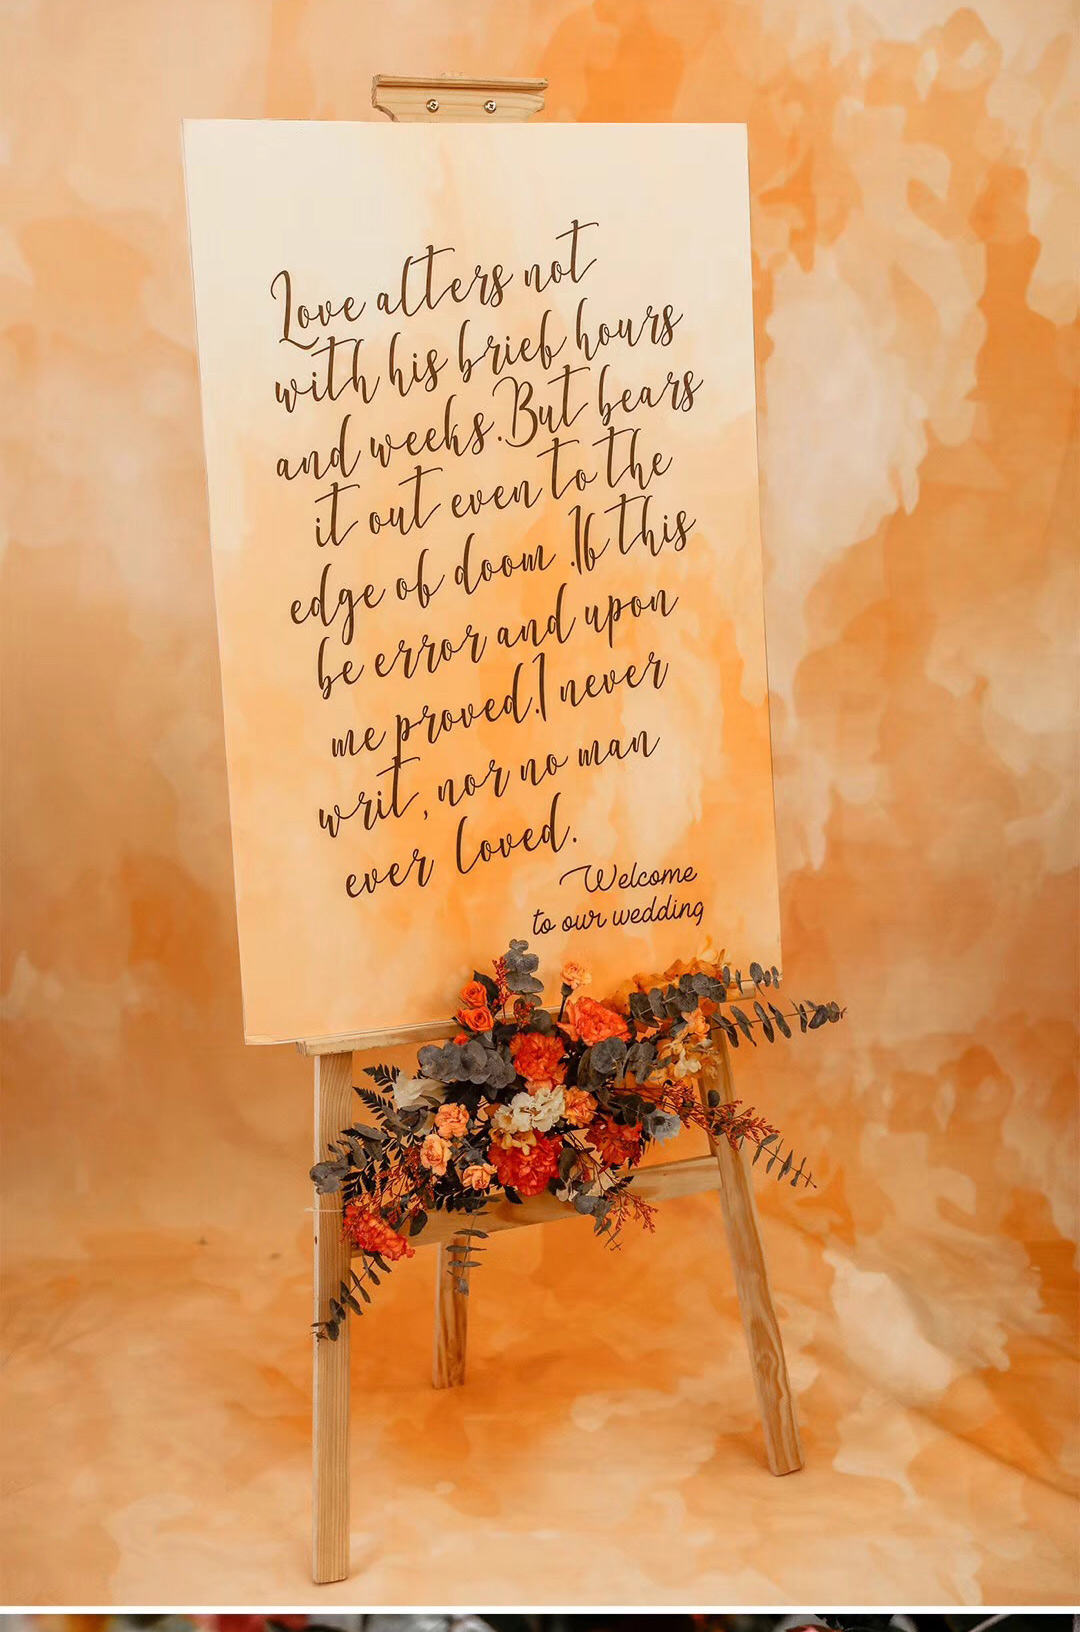 Love alters not
with his brief hours
and weeks.But bears
it out even to the
edge of doom .If this
be error and upon
me proved.I never
writ, nor no man
ever loved.
Welcome
to our wedding